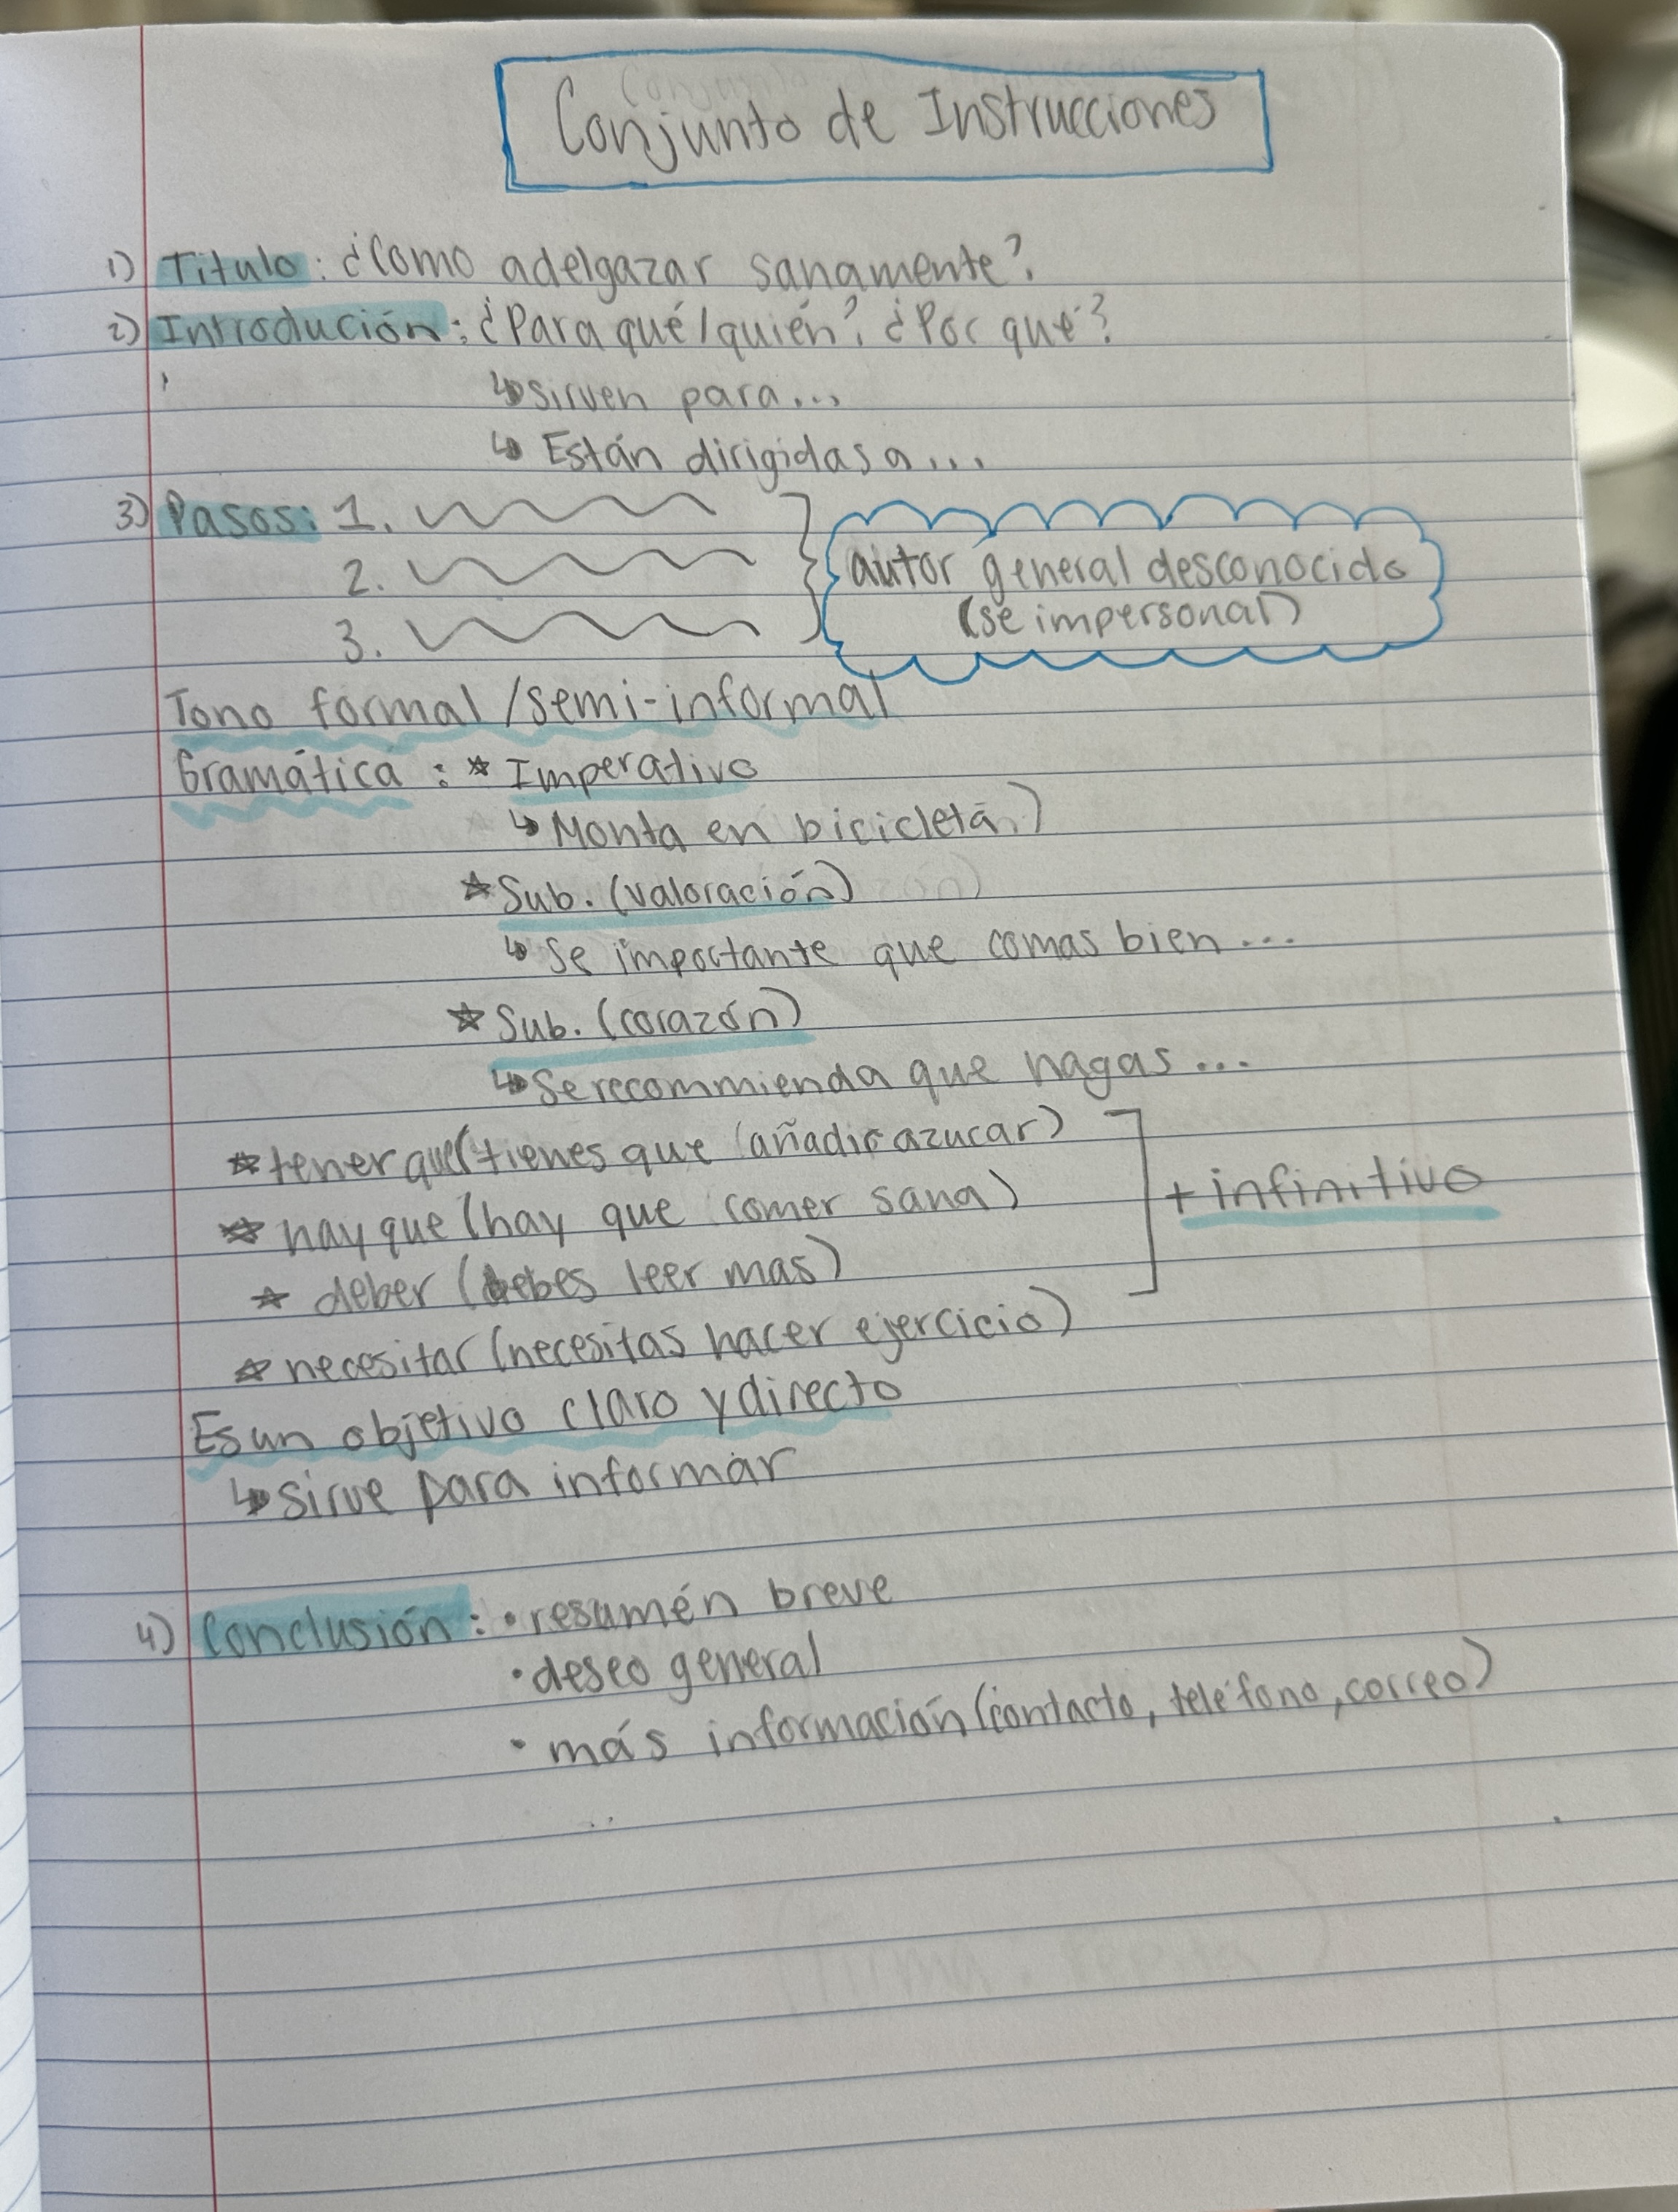 Conjunto de Instrucciones
1) Titulo: ¿Como adelgazar sanamente?
2) Introdución: ¿Para qué/quién? ¿Por qué?
↳ sirven para...
↳ Están dirigidas a...
3) Pasos: 1.
2.
3.
autor general desconocido
(se impersonal)
Tono formal/semi-informal
Gramática: * Imperativo
↳ Monta en bicicleta)
* Sub. (valoración)
↳ Se importante que comas bien...
* Sub. (corazón)
↳ Se recommienda que hagas...
* tener que (tienes que añadir azucar)
* hay que (hay que comer sana)
+ infinitivo
* deber (debes leer mas)
* necesitar (necesitas hacer ejercicio)
Es un objetivo claro y directo
↳ sirve para informar
4) Conclusión: • resumén breve
• deseo general
• más información (contacto, teléfono, correo)